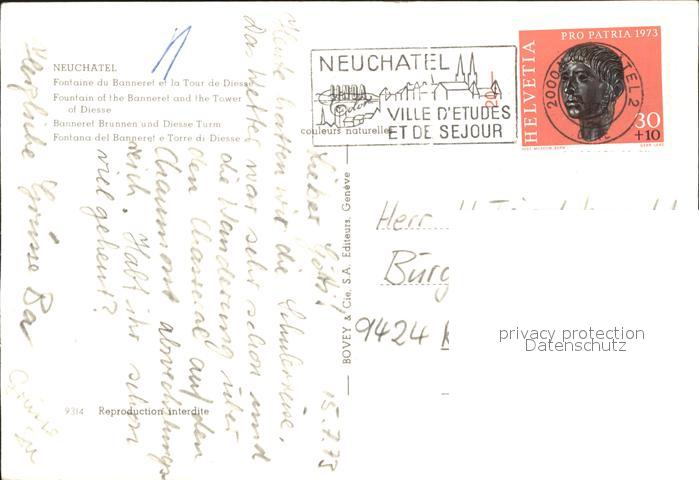 NEUCHATEL
Fontaine du Banneret et la Tour de Diesse
Fountain of the Banneret and the Tower
of Diesse
Banneret Brunnen und Diesse Turm
Fontana del Banneret e Torre di Diesse
couleurs naturelles
NEUCHATEL
VILLE D'ETUDES
ET DE SEJOUR
2000
TEL 2
PRO PATRIA 1973
HELVETIA
30
+10
15.7.73
Lieber Götti!
Heute hatten wir die Schulreise.
Das Wetter war sehr schön und
die Wanderung über
den Chasseral auf den
Chaumont abwechslungs
reich. Habt ihr schon
viel geheut?
Herzliche Grüsse
BOVEY & Cie, S.A. Editeurs, Genève
Herr
Burg
9424
9314 Reproduction interdite
privacy protection
Datenschutz